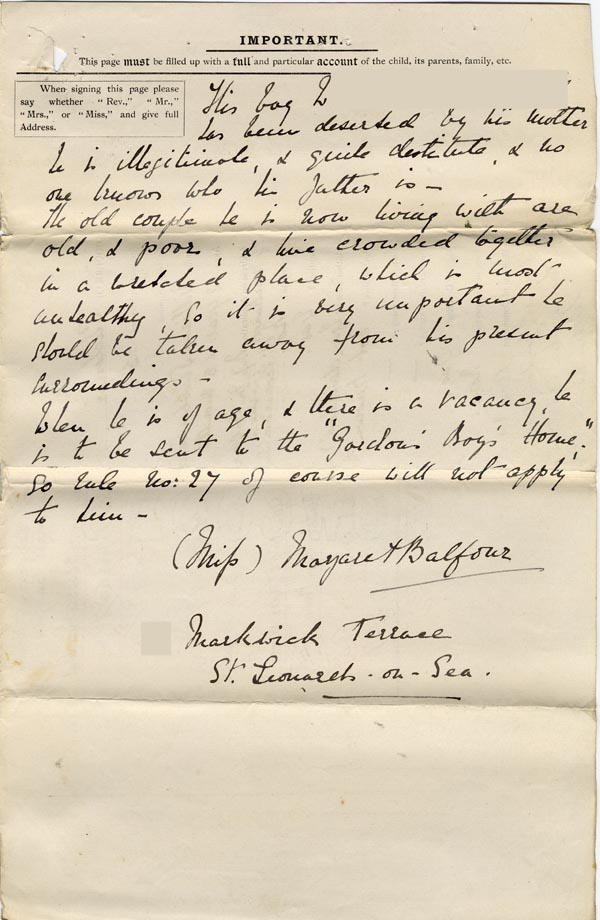 IMPORTANT.
This page must be filled up with a full and particular account of the child, its parents, family, etc.
When signing this page please
say whether "Rev.," "Mr.,"
"Mrs.," or "Miss," and give full
Address.
This boy
has been deserted by his mother
he is illegitimate, & quite destitute, & no
one knows who his father is –
The old couple he is now living with are
old, & poor, & live crowded together
in a wretched place, which is most
unhealthy, so it is very important he
should be taken away from his present
surroundings –
When he is of age, & there is a vacancy, he
is to be sent to the "Gordon's Boy's Home."
So rule no: 27 of course will not apply
to him –
(Miss) Margaret Balfour
Markwick Terrace
St. Leonards-on-Sea.